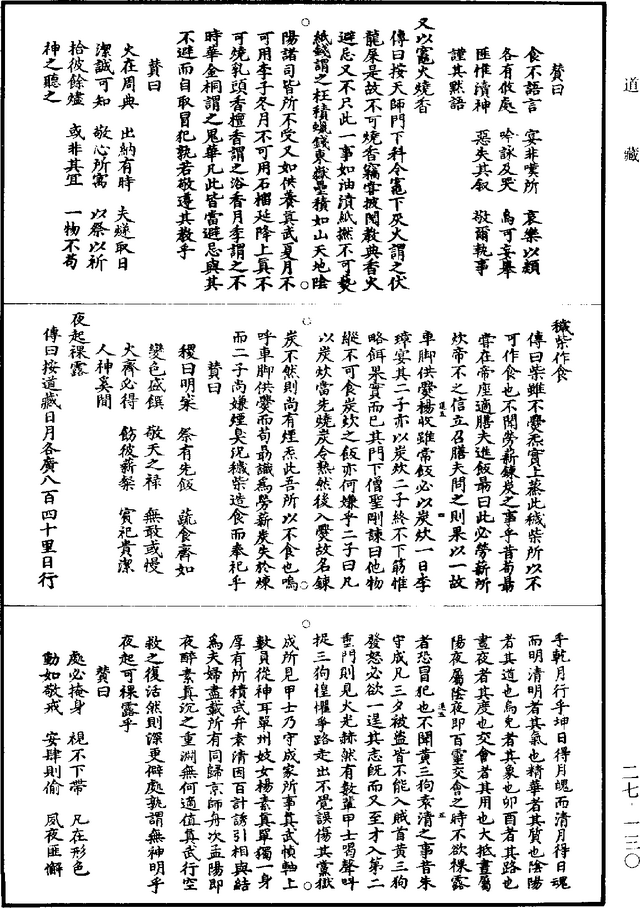 道藏
贊曰
食不語言　宴非嘆所　哀樂以類
各有攸處　吟詠及哭　烏可妄舉
匪惟瀆神　惡失其叙　敬爾執事
謹其默語
又以竈火燒香
傳曰按天師門下科令竈下灰火謂之伏
龍屎是故不可燒香竊嘗披閱教典香火
避忌又不只此一事如油漬紙撚不可爇
紙錢謂之枉積蠟錢東嶽壘積如山天地陰
陽諸司皆所不受又如供養真武夏月不
可用李子冬月不可用石榴延降上真不
可燒乳頭香檀香謂之浴香月季謂之不
時華金桐謂之鬼華凡此皆當避忌與其
不避而自取冒犯孰若敬遵其教乎
贊曰
火在周典　出納有時　夫燧取日
潔誠可知　敬心所寓　以祭以祈
拾彼餘爐　或非其宜　一物不苟
神之聽之
穢柴作食
傳曰柴雖不爨炁實上蒸此穢柴所以不
可作食也不聞勞薪鍊炭之事乎昔荀勗
嘗在帝座適膳夫進飯勗曰此必勞薪所
炊帝不之信立召膳夫問之則果以一故
車脚供爨楊收雖常飯必以炭炊一日李
璋宴其二子亦以炭炊二子終不下筯惟
略餌果實而已其門下僧聖剛諫曰他物
縱不可食炭炊之飯亦何嫌乎二子曰凡
以炭炊當先燒炭令熟然後入爨故名鍊
炭不然則尚有煙炁此吾所以不食也嗚
呼車脚供爨而荀勗識為勞薪炭失於煉
而二子尚嫌煙臭況穢柴造食而奉祀乎
贊曰
稷曰明粢　祭有先飯　蔬食齋如
變色盛饌　敬天之祿　無敢或慢
火齊必得　飭彼薪槱　賓祀貴潔
人神奚間
夜起裸露
傳曰按道藏日月各廣八百四十里日行
乎乾月行乎坤日得月魄而清月得日魂
而明清明者其氣也精華者其質也陰陽
者其道也烏兔者其象也卯酉者其路也
晝夜者其度也交會者其用也大抵晝屬
陽夜屬陰夜即百靈交會之時不欲裸露
者恐冒犯也不聞黃三狗素清之事昔朱
守成凡三夕被盜皆不能入賊首黃三狗
發怒必欲一逞其志既而又至才入第二
重門則見火光赫然有數輩甲士喝聲叫
捉三狗惶懼爭路走出不覺誤傷其黨獄
成所見甲士乃守成家所事真武幀軸上
數員從神耳單州妓女楊素真單獨一身
厚有所積武弁素清因百計誘引相與結
為夫婦盡載所有同歸京師舟次孟陽即
夜醉素真沉之重淵無何適值真武行空
救之復活然則深更僻處孰謂無神明乎
夜起可裸露乎
贊曰
處必掩身　視不下帶　凡在形色
動如敬戒　安肆則偷　夙夜匪懈
二七·一三〇